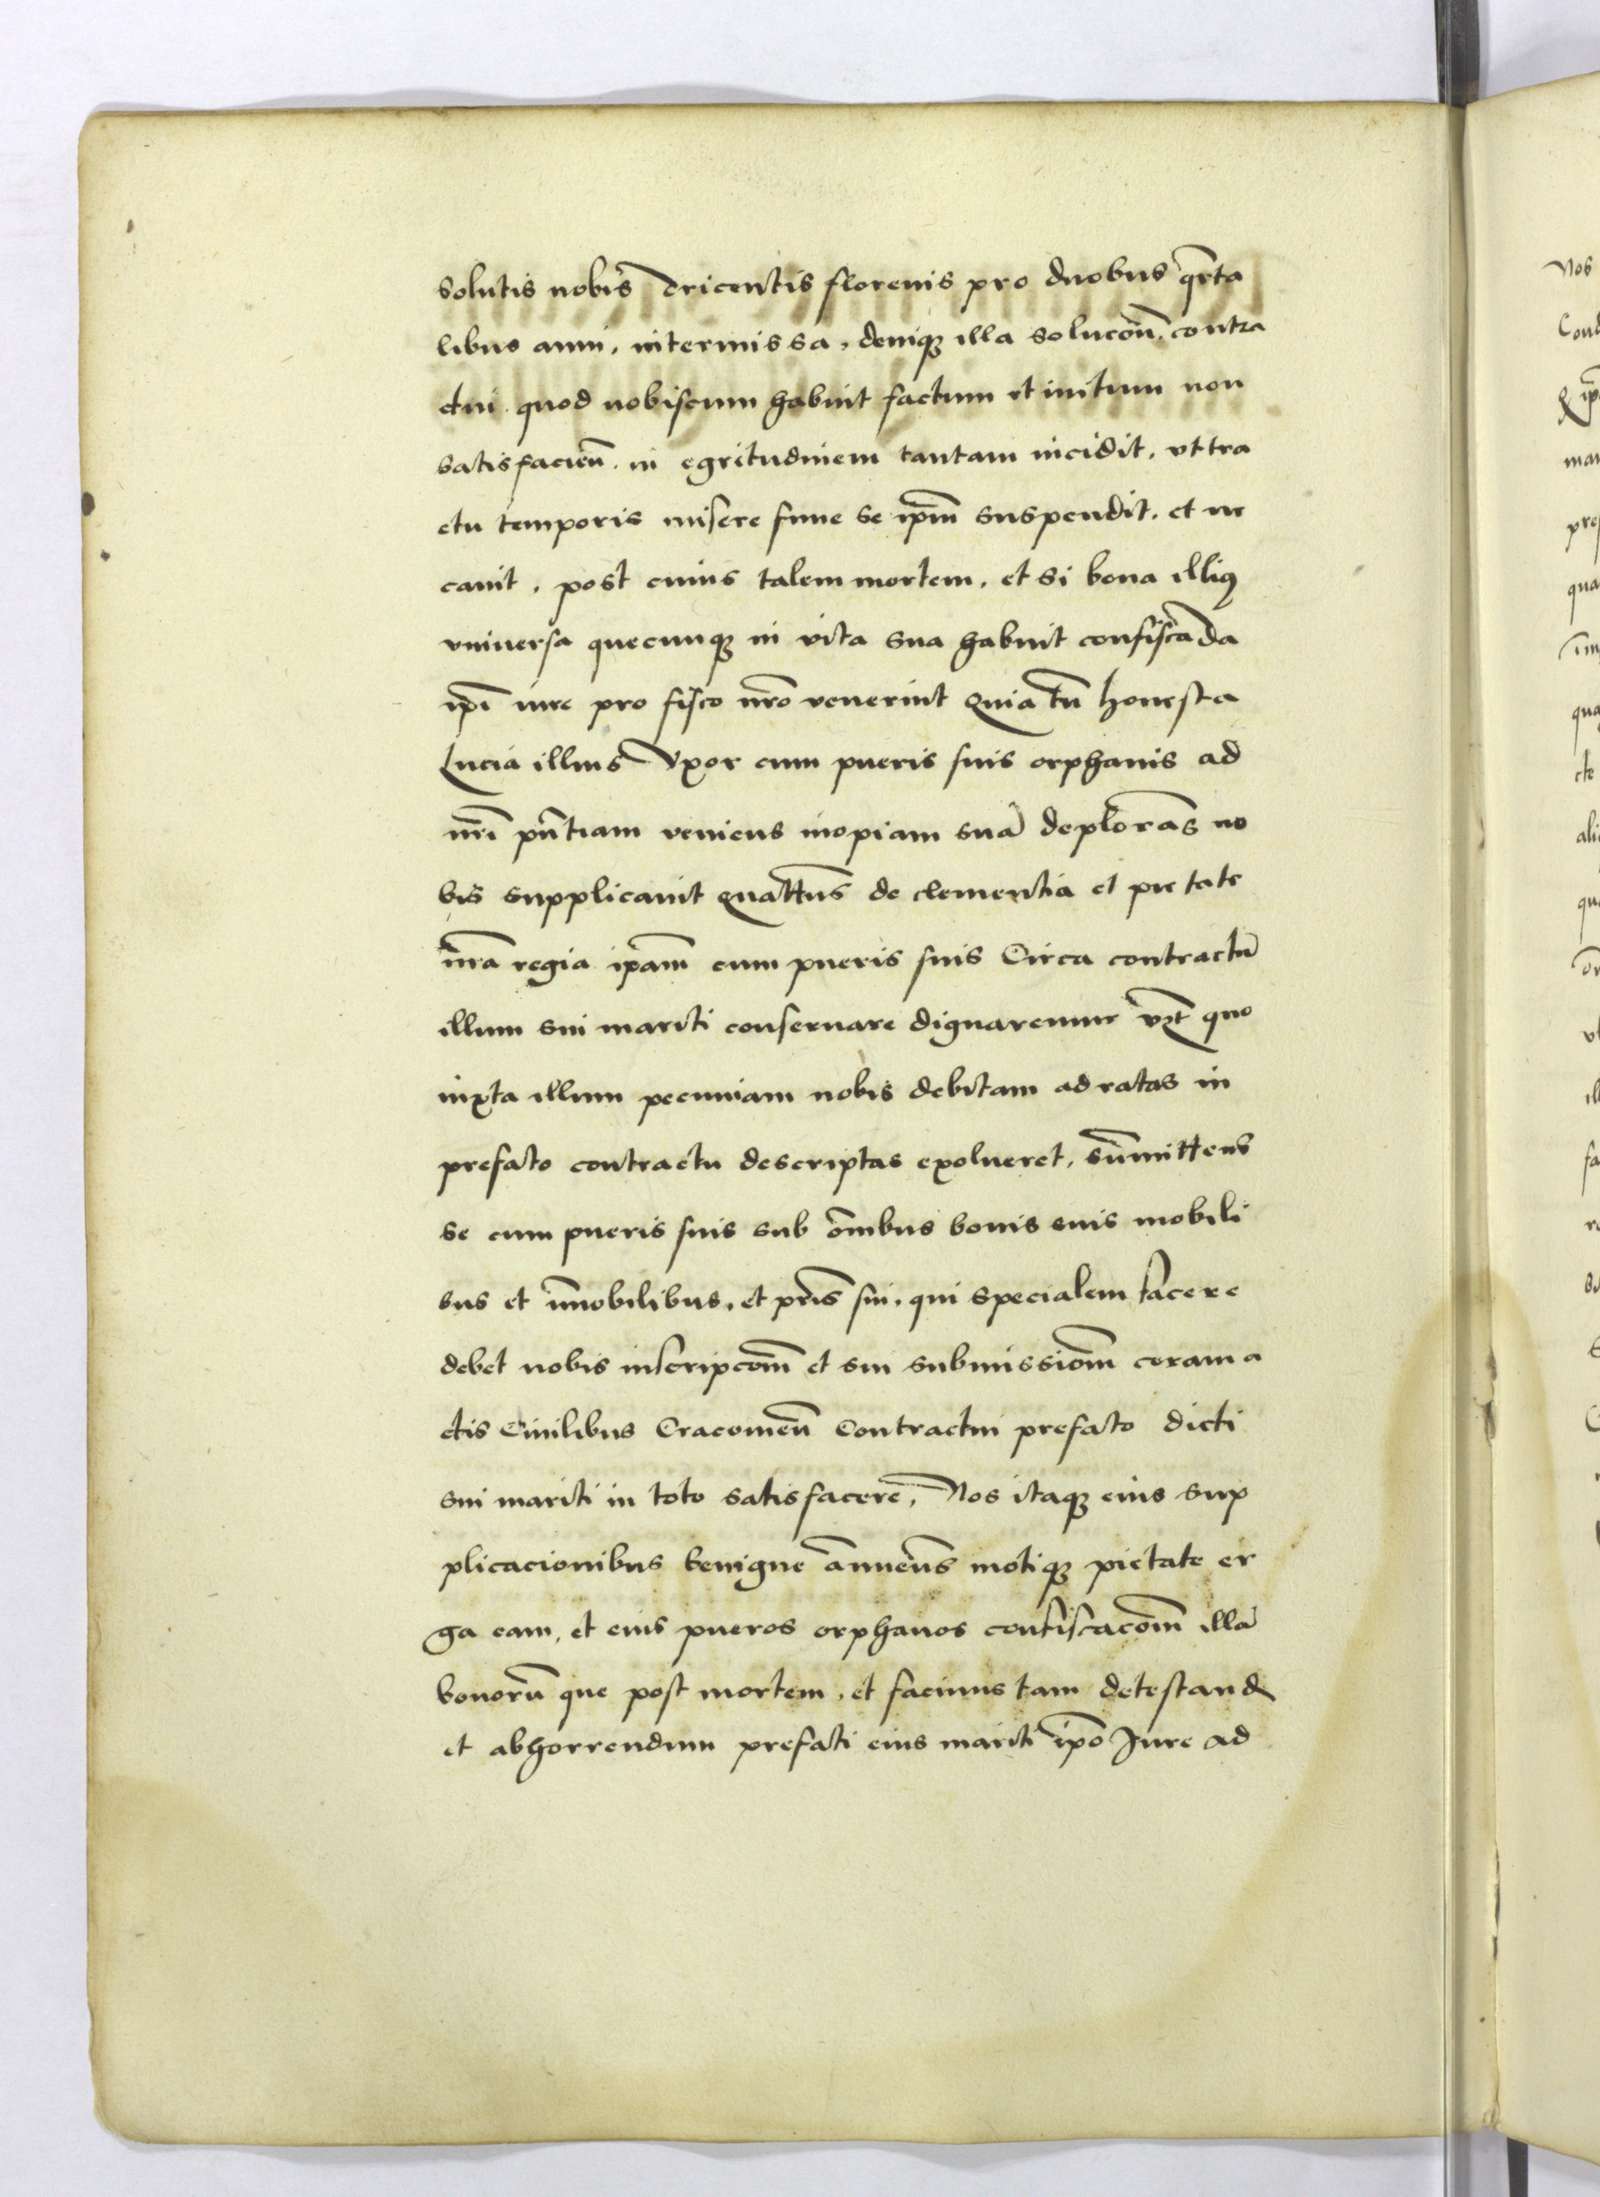 solutis nobis Tricentis florenis pro duobus qrta
libus anni, intermissa, deniqȝ illa solucoñ. contra
ctui quod nobiscum habuit factum et initum non
satisfacieñ. in egritudinem tantam incidit, vt tra
ctu temporis misere fune se ipm̄ suspendit. et ne
cauit, post cuius talem mortem, et si bona illiꝰ
vniuersa quecunqȝ in vita sua habuit confiscāda
ip̄i iure pro fisco nr̄o venerint Quia tn̄ honesta
Lucia illius Vxor cum pueris suis orphanis ad
nr̄i pn̄tiam veniens inopiam suā deplorās no
bis supplicauit quatt̄us de clementia et pietate
nr̄a regia ipam̄ cum pueris suis Circa contractū
illum sui mariti conseruare dignaremur vꝫt quo
iuxta illum pecuniam nobis debitam ad ratas in
prefato contractu descriptas exolueret, sūmittens
se cum pueris suis sub om̄ibus bonis suis mobili
bus et im̄obilibus, et pr̄is sui. qui specialem facere
debet nobis inscripcōm et sui submissiōm coram a
ctis Ciuilibus Cracouieñ Contractui prefato dicti
sui mariti in toto satisfacere, Nos itaqȝ eius sup
plicacionibus benigne annuen̄s motiqȝ pietate er
ga eam, et eius pueros orphanos confiscacōm illā
bonorū que post mortem, et facinus tam detestand
et abhorrendum prefati eius mariti ip̄o Jure ad
Nos